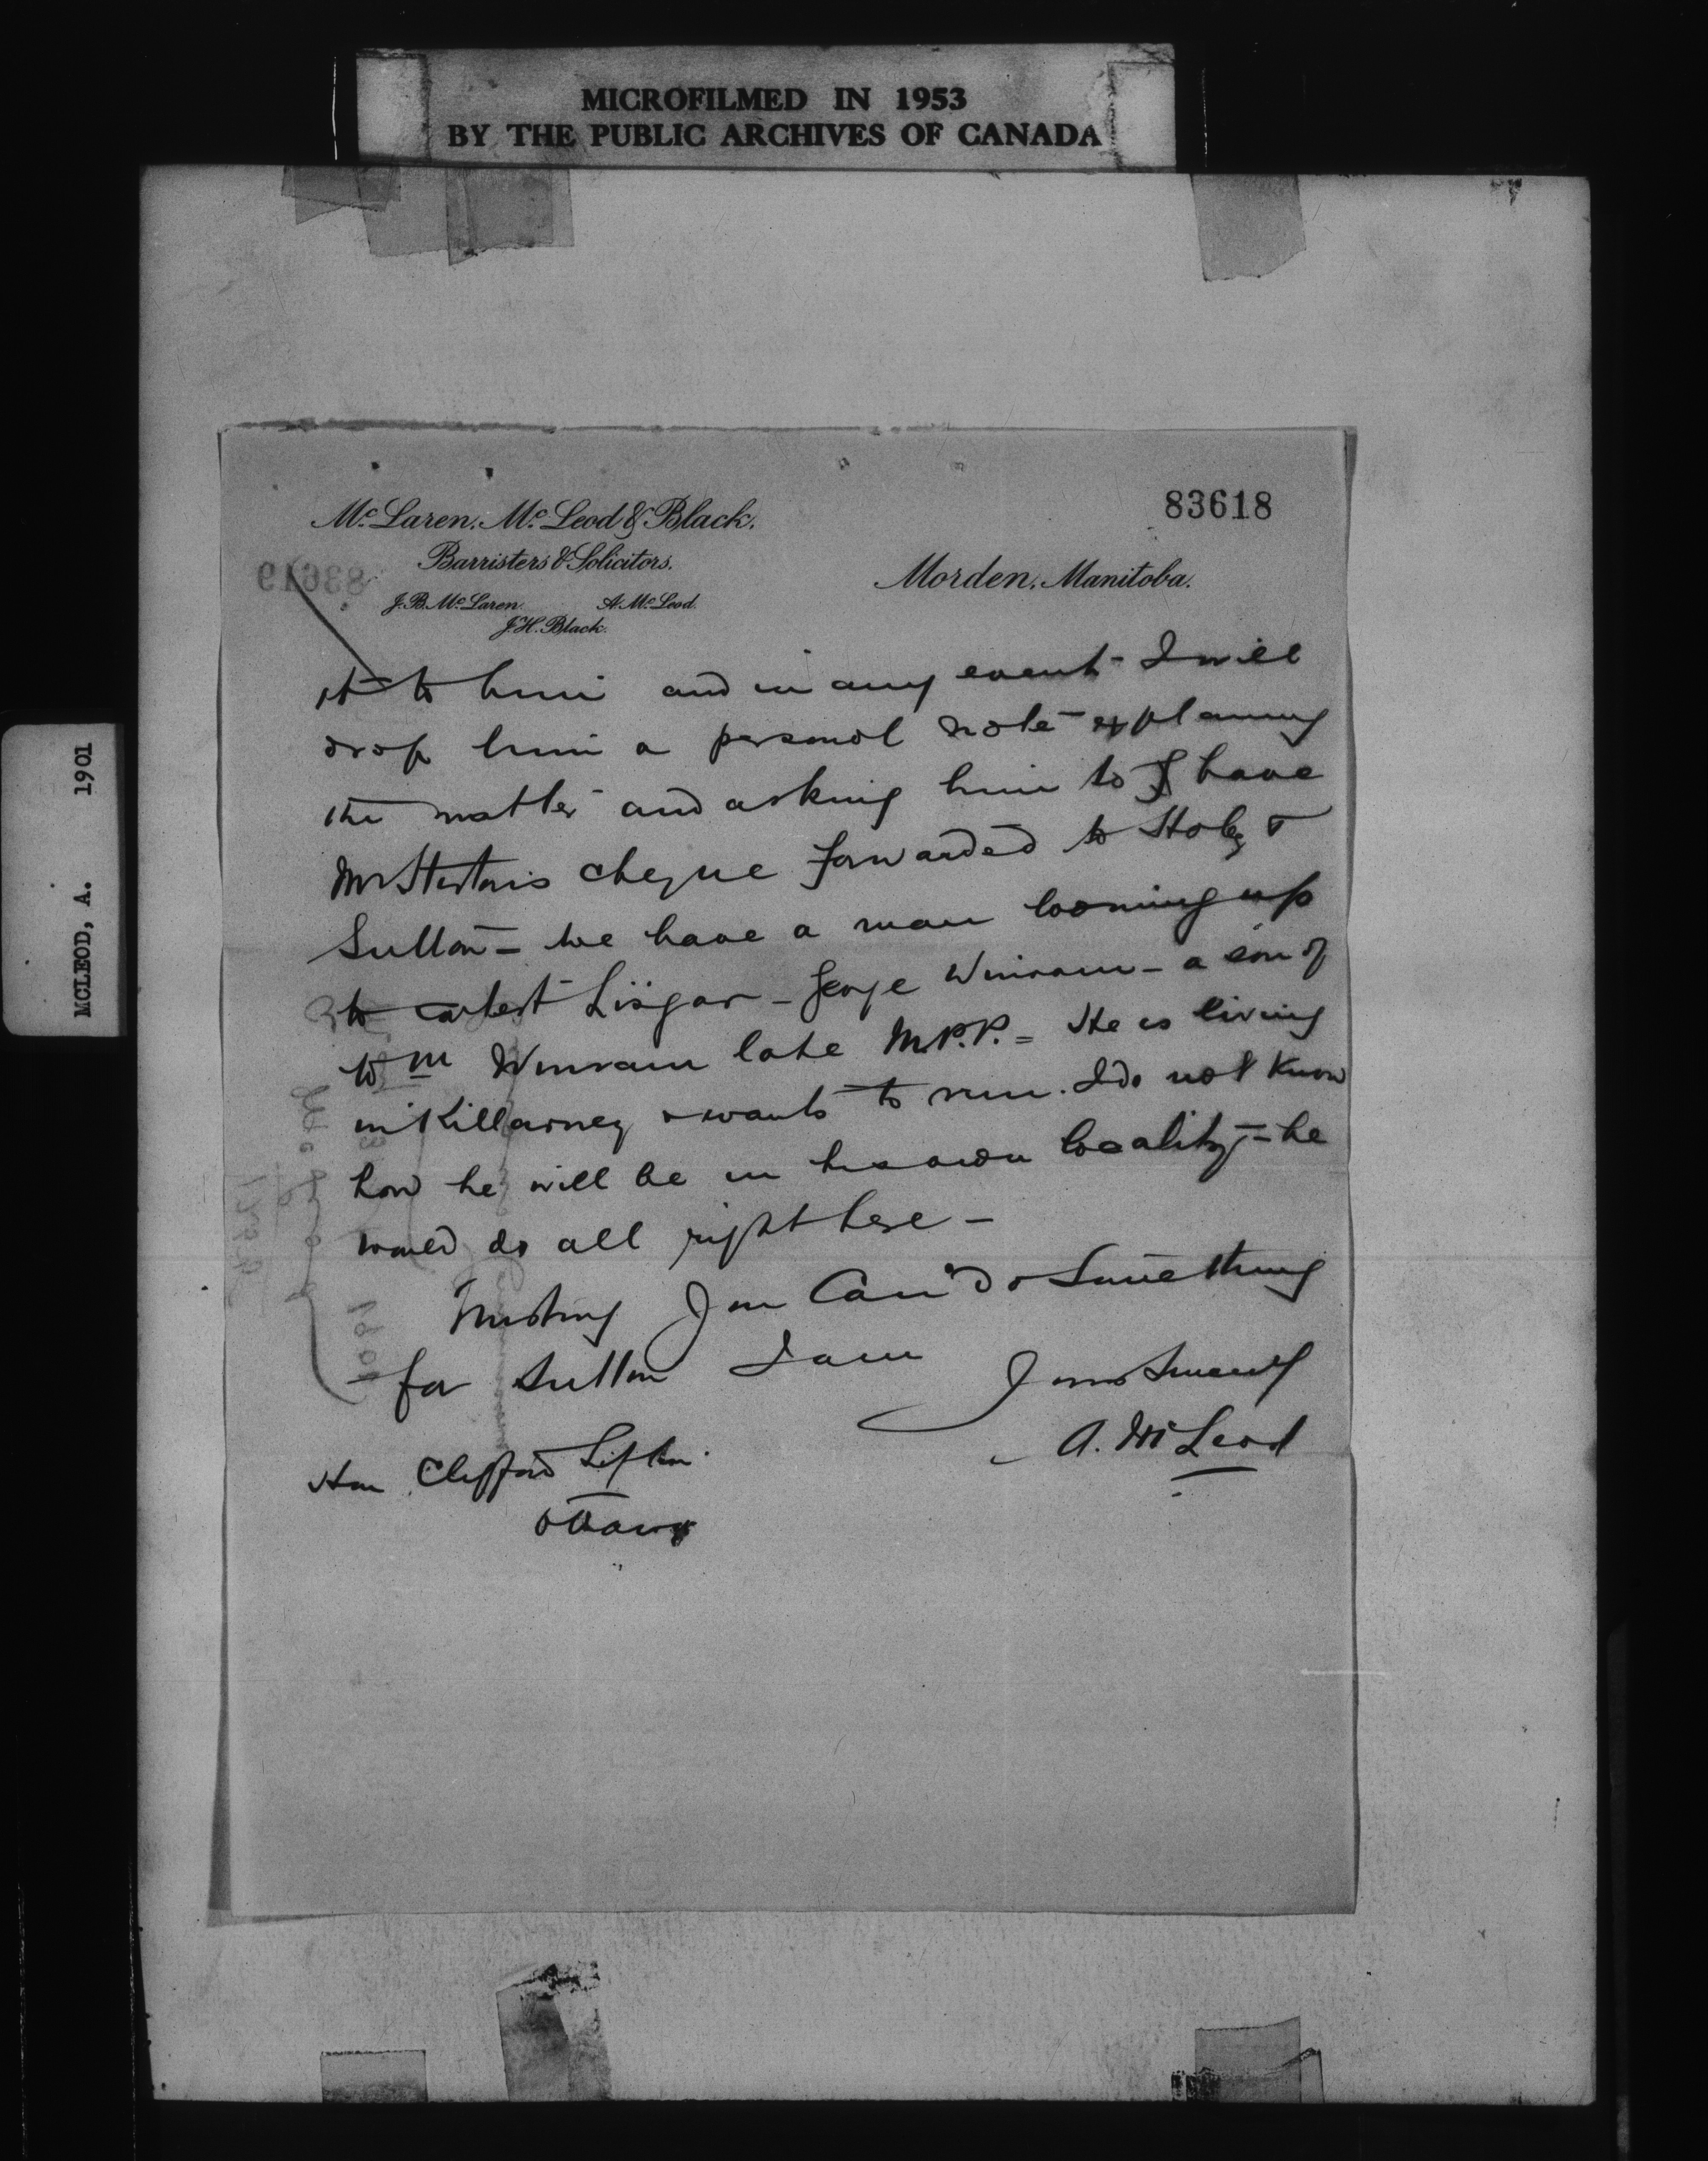 MICROFILMED IN 1953
BY THE PUBLIC ARCHIVES OF CANADA
MCLEOD, A. 1901
83618
Mc Laren, Mc Leod & Black.
Barristers & Solicitors.
J. B. Mc Laren. A. Mc Leod.
J. H. Black.
Morden, Manitoba.
it to him and in any event - I will
drop him a personal note explaining
the matter and asking him to have
Mr cheque forwarded to &
Sutton - We have a man looming up
to contest Lisgar - George Winram - a son of
Wm Winram late M.P.P. = He is living
in Killarney & wants to run. I do not know
how he will be in his own locality - he
would do all right here -
Trusting you can do something
for Sutton I am
Yours Sincerely
A. McLeod
Hon Clifford Sifton
Ottawa